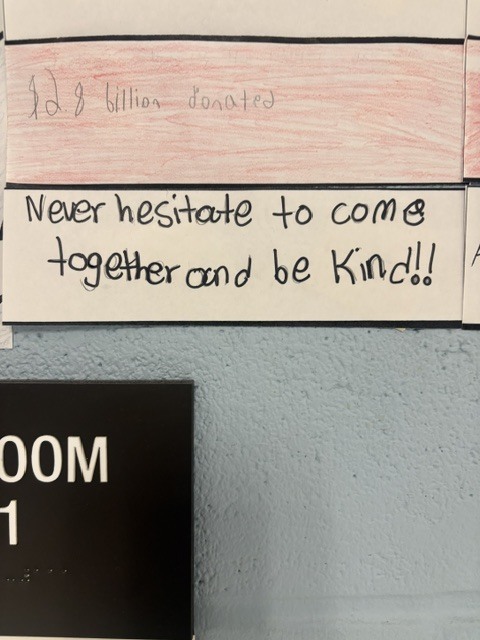 $2.8 billion donated
Never hesitate to come
together and be Kind!!
OOM
1